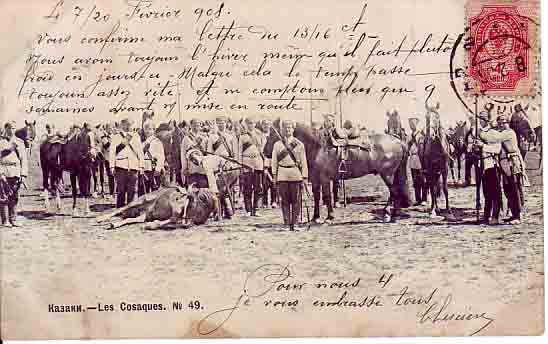 Le 7/20 Février 908.
Vous confirme ma lettre du 13/16 ct
Nous avons toujours l'hiver même qu'il fait plutôt
froid en jours-ci - Malgré cela le temps passe
toujours assez vite et ne comptons plus que 9
semaines avant mise en route
Pour nous 4
je vous embrasse tous
Казаки.—Les Cosaques. № 49.